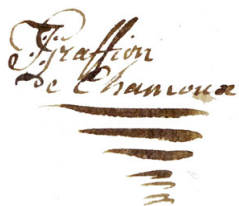 Graffion
De Chamoux